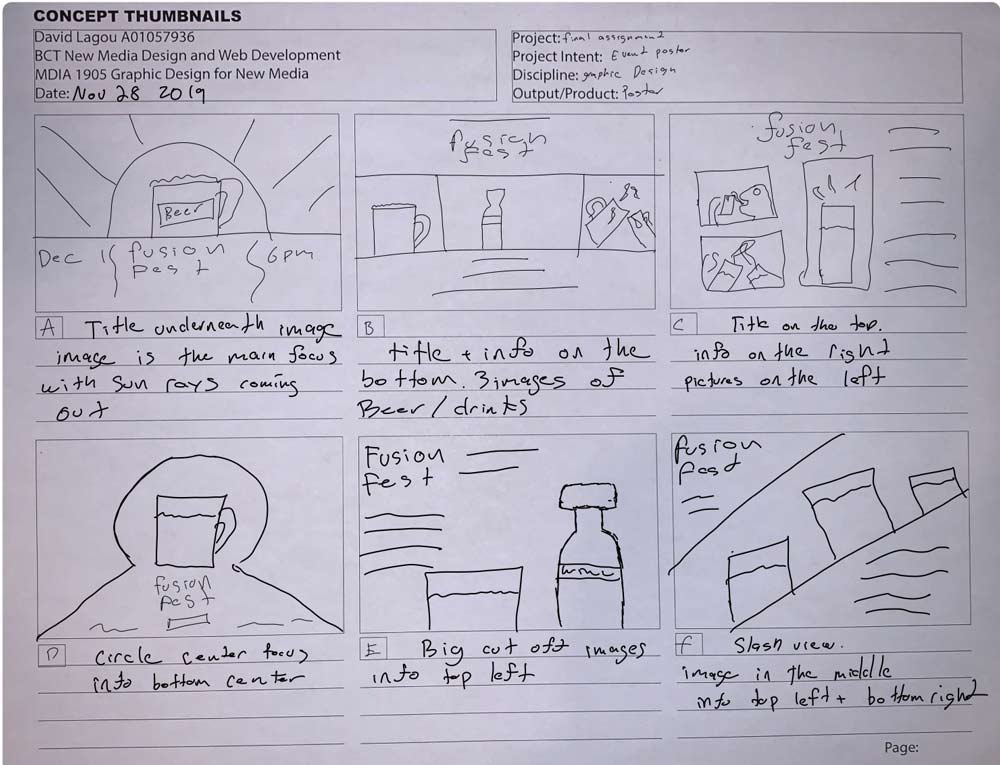 CONCEPT THUMBNAILS
David Lagou A01057936
BCT New Media Design and Web Development
MDIA 1905 Graphic Design for New Media
Date: Nov 28 2019
Project: final assignment
Project Intent: Event poster
Discipline: graphic Design
Output/Product: Poster
Beer
Dec 1
fusion
fest
6pm
fusion
fest
fusion
fest
A Title underneath image
image is the main focus
with sun rays coming
out
B
title + info on the
bottom. 3 images of
Beer/drinks
C Title on the top.
info on the right
pictures on the left
fusion
fest
Fusion
fest
wine
fusion
fest
D circle center focus
info bottom center
E Big cut off images
info top left
F Slash view.
image in the middle
info top left + bottom right
Page: